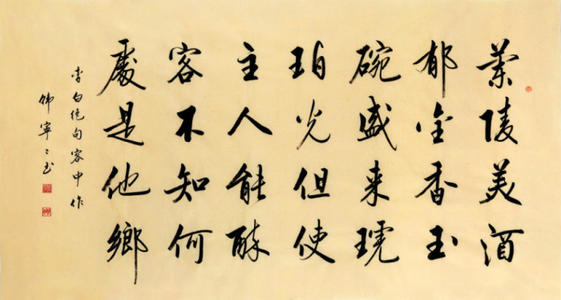 蘭陵美酒
郁金香玉
碗盛来琥
珀光但使
主人能醉
客不知何
處是他鄉
李白绝句客中作
寧〻书